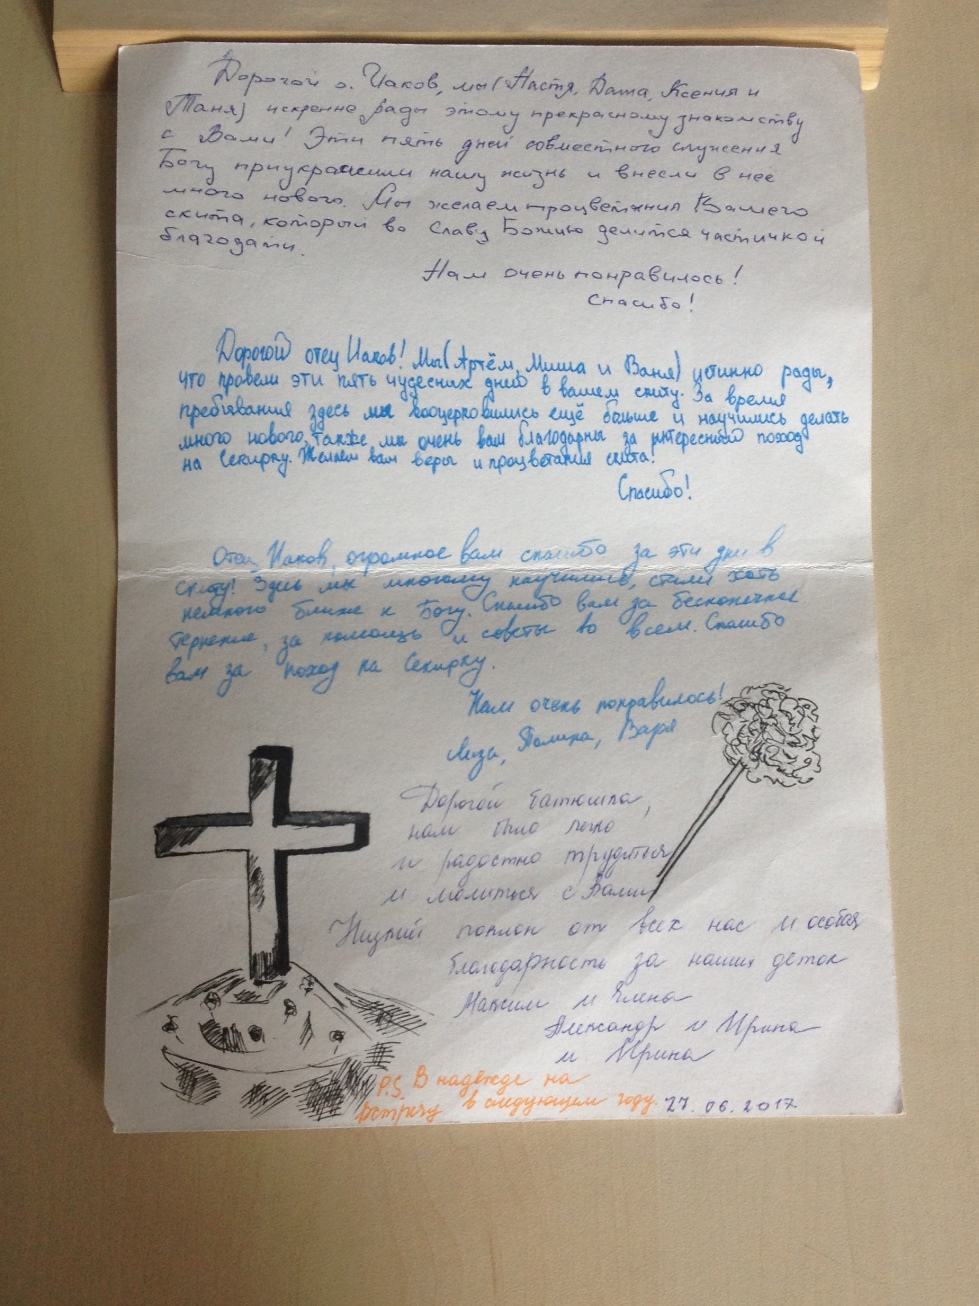 Дорогой о. Иаков, мы (Настя, Даша, Ксения и
Таня) искренне рады этому прекрасному знакомству
с Вами! Эти пять дней совместного служения
Богу приукрасили нашу жизнь и внесли в неё
много нового. Мы желаем процветания Вашего
скита, который во Славу Божию делится частичкой
благодати.
Нам очень понравилось!
Спасибо!
Дорогой отец Иаков! Мы (Артём, Миша и Ваня) истинно рады,
что провели эти пять чудесных дней в вашем скиту. За время
пребывания здесь мы воцерковились ещё больше и научились делать
много нового, также мы очень вам благодарны за интересный поход
на Секирку. Желаем вам веры и процветания скита!
Спасибо!
Отец Иаков, огромное вам спасибо за эти дни в
скиту! Здесь мы многому научились, стали хоть
немного ближе к Богу. Спасибо вам за бесконечное
терпение, за помощь и советы во всем. Спасибо
вам за поход на Секирку.
Нам очень понравилось!
Лиза, Полина, Варя
Дорогой батюшка,
нам было легко
и радостно трудиться
и молиться с Вами
Низкий поклон от всех нас и особая
благодарность за наших деток
Максим и Елена
Александр и Ирина
и Ирина
P.S. В надежде на
встречу в следующем году. 27.06.2017